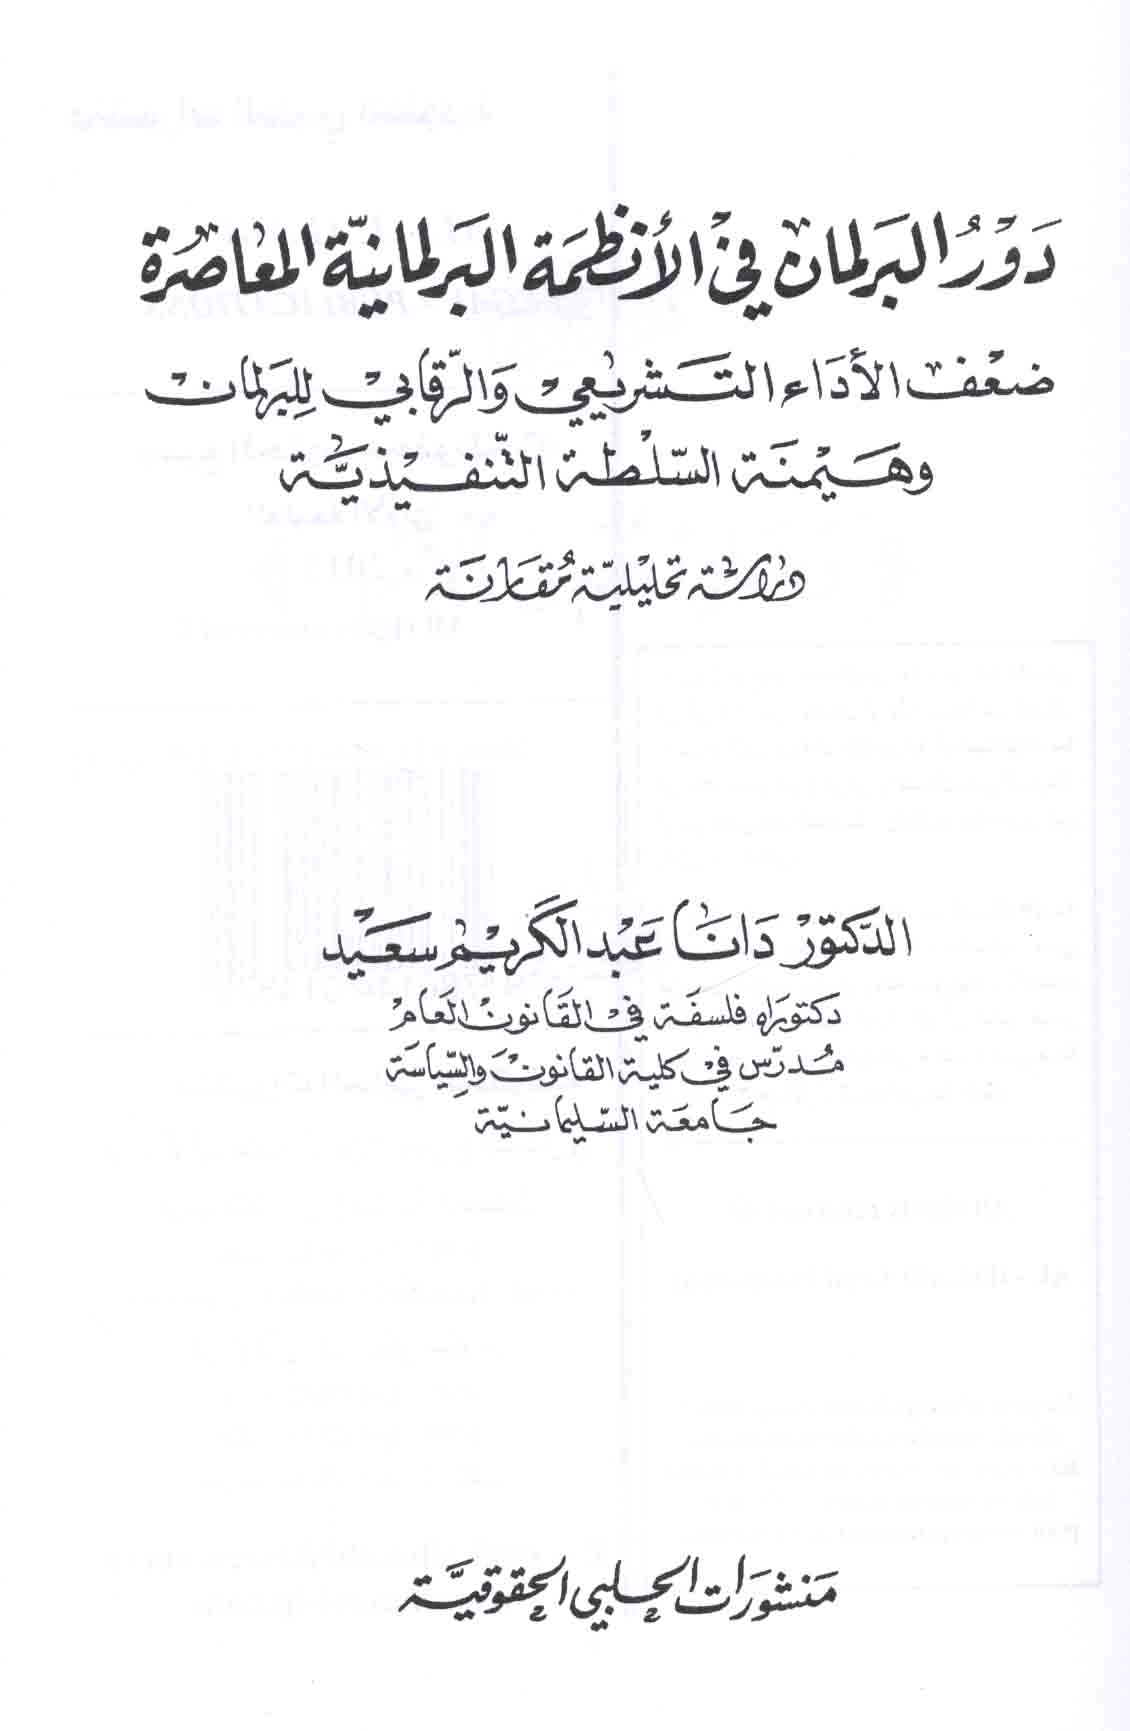 دَوْرُ البَرلمان في الأنظمَة البَرلمانيّة المعَاصرَة
ضعْف الأدَاء التَشريعي وَالرّقابي لِلبَرلمان
وهَيمنَة السّلطة التّنفيذيَّة
دراسَة تحليليّة مُقَارنَة
الدّكتوْر دَانَا عَبْد الكَريم سَعَيْد
دكتوراه فلسفَة في القَانون العَام
مُدرّس في كلية القانون وَالسِّيَاسَة
جَامعَة السّليمانيّة
مَنشورَات الحلبي الحقوقيَّة